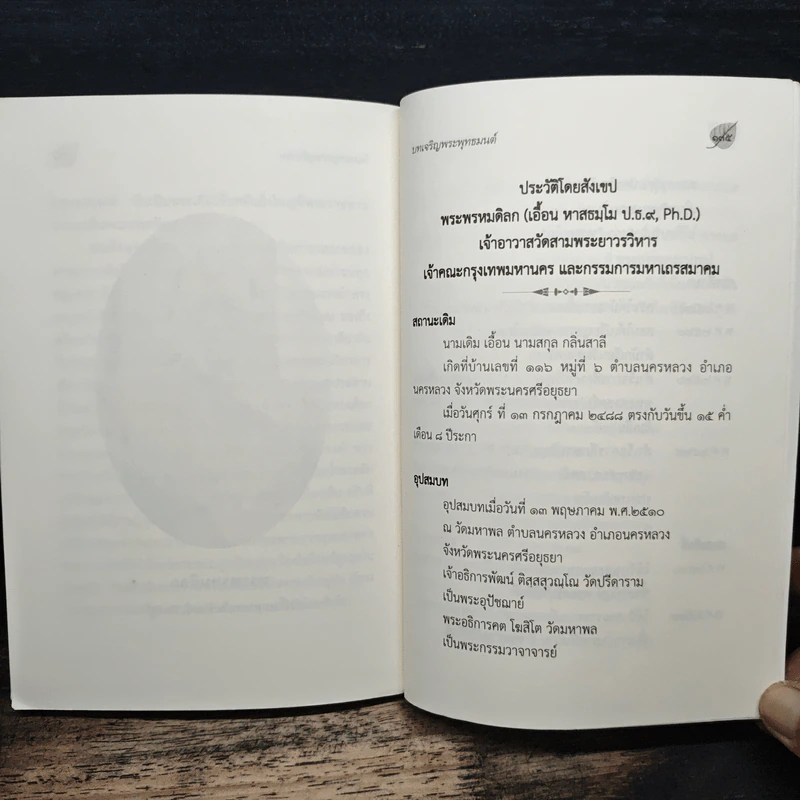 บทเจริญพระพุทธมนต์
๑๓๕
ประวัติโดยสังเขป
พระพรหมดิลก (เอื้อน หาสธมฺโม ป.ธ.๙, Ph.D.)
เจ้าอาวาสวัดสามพระยาวรวิหาร
เจ้าคณะกรุงเทพมหานคร และกรรมการมหาเถรสมาคม
สถานะเดิม
นามเดิม เอื้อน นามสกุล กลิ่นสาลี
เกิดที่บ้านเลขที่ ๑๑๖ หมู่ที่ ๖ ตำบลนครหลวง อำเภอ
นครหลวง จังหวัดพระนครศรีอยุธยา
เมื่อวันศุกร์ ที่ ๑๓ กรกฎาคม ๒๔๘๘ ตรงกับวันขึ้น ๑๕ ค่ำ
เดือน ๘ ปีระกา
อุปสมบท
อุปสมบทเมื่อวันที่ ๑๓ พฤษภาคม พ.ศ.๒๕๑๐
ณ วัดมหาพล ตำบลนครหลวง อำเภอนครหลวง
จังหวัดพระนครศรีอยุธยา
เจ้าอธิการพัฒน์ ติสฺสสุวณฺโณ วัดปรีดาราม
เป็นพระอุปัชฌาย์
พระอธิการคต โฆสิโต วัดมหาพล
เป็นพระกรรมวาจาจารย์